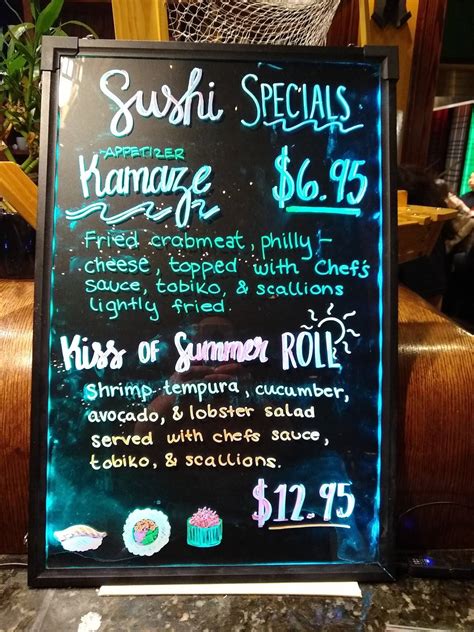 Sushi SPECIALS
APPETIZER
Kamaze $6.95
Fried crabmeat, philly-
cheese, topped with Chef's
sauce, tobiko, & scallions
lightly fried.
Kiss of Summer ROLL
Shrimp tempura, cucumber,
avocado, & lobster salad
served with chefs sauce,
tobiko, & scallions.
$12.95